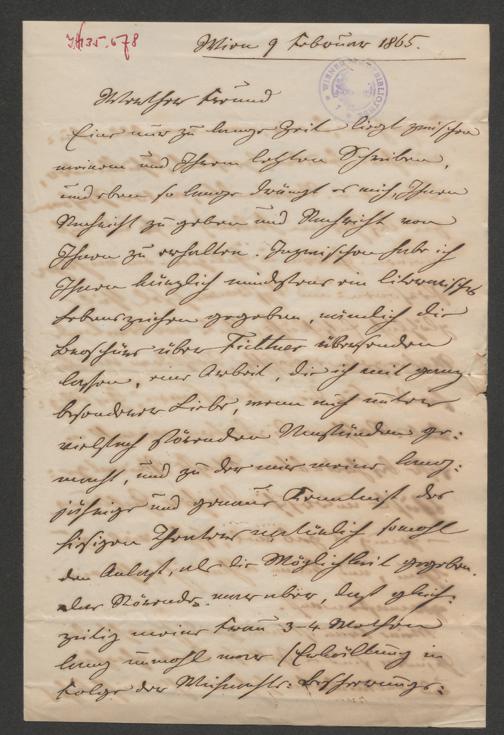 JN 35.678
Wien 9 Februar 1865.
WIENER BIBLIOTHEK
Werther Freund
Eine nur zu lange Zeit liegt zwischen
meinem und Ihrem letzten Schreiben,
und eben so lange drängt es mich, Ihnen
Nachricht zu geben und Nachricht von
Ihnen zu erhalten. Inzwischen habe ich
Ihnen kürzlich mindestens ein literarisches
Lebenszeichen gegeben, nämlich die
Broschüre über Fichtner übersenden
lassen, eine Arbeit, die ich mit ganz
besonderer Liebe, wenn auch unter
vielfach störenden Umständen ge-
macht, und zu der mir meine lang-
jährige und genaue Kenntniß des
hiesigen Theaters natürlich sowohl
den Anlaß, als die Möglichkeit gegeben.
Das Störende war aber, daß gleich-
zeitig meine Frau 3-4 Wochen
lang unwohl war (Erkältung in
Folge der Weihnachts-Bescheerungs-